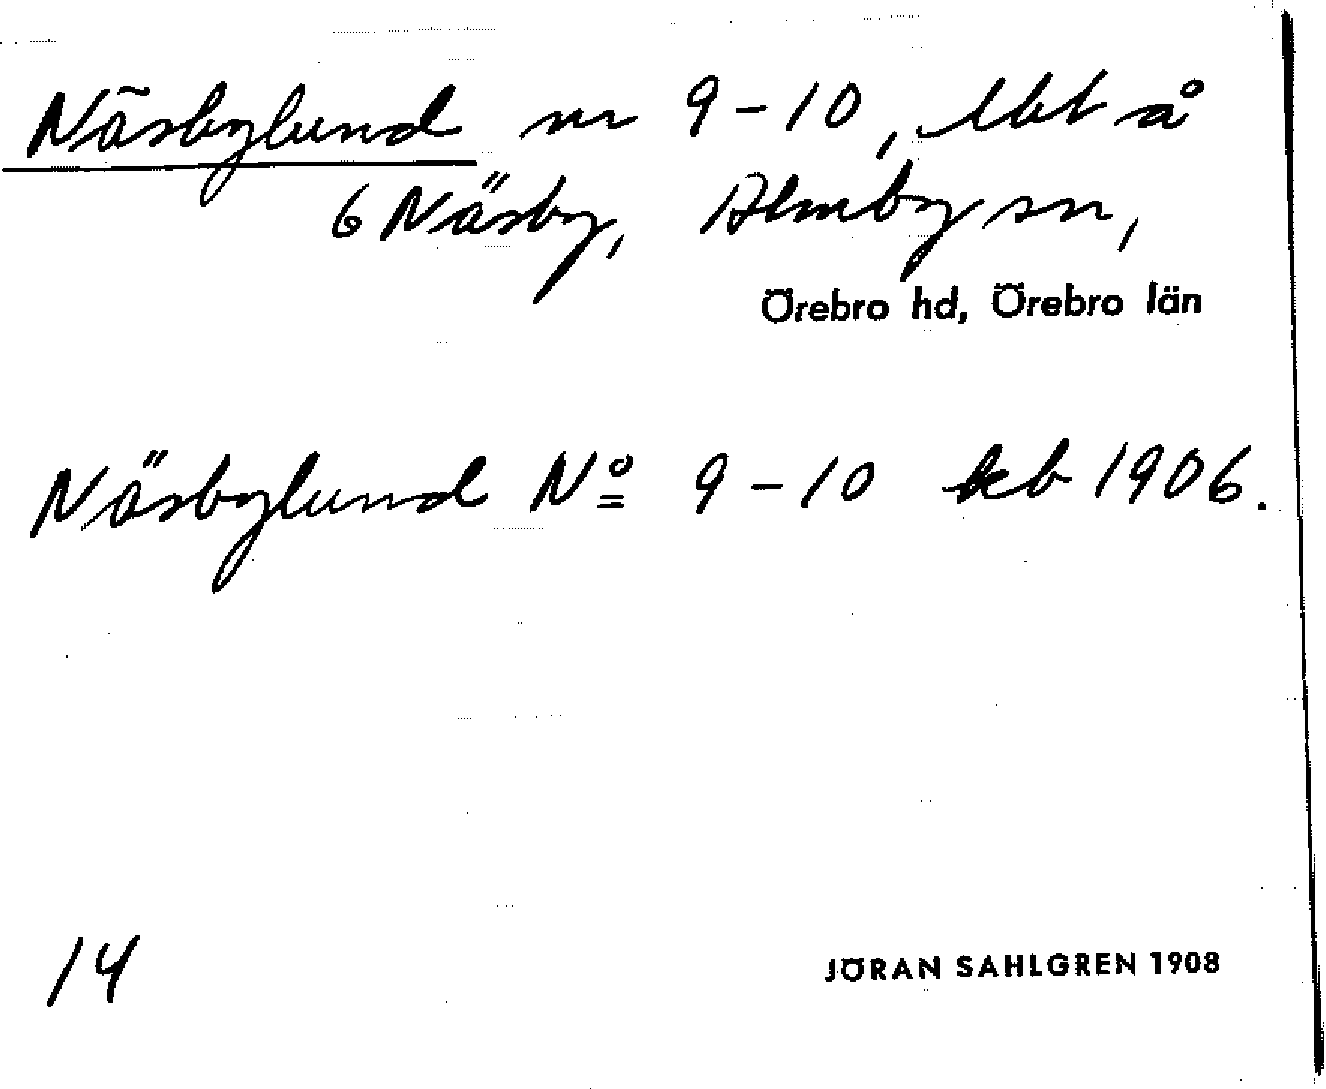 Näsbylund nr 9-10, lht å
6 Näsby, Almby sn,
Örebro hd, Örebro län
Näsbylund Nº 9-10 kb 1906.
14
JÖRAN SAHLGREN 1908